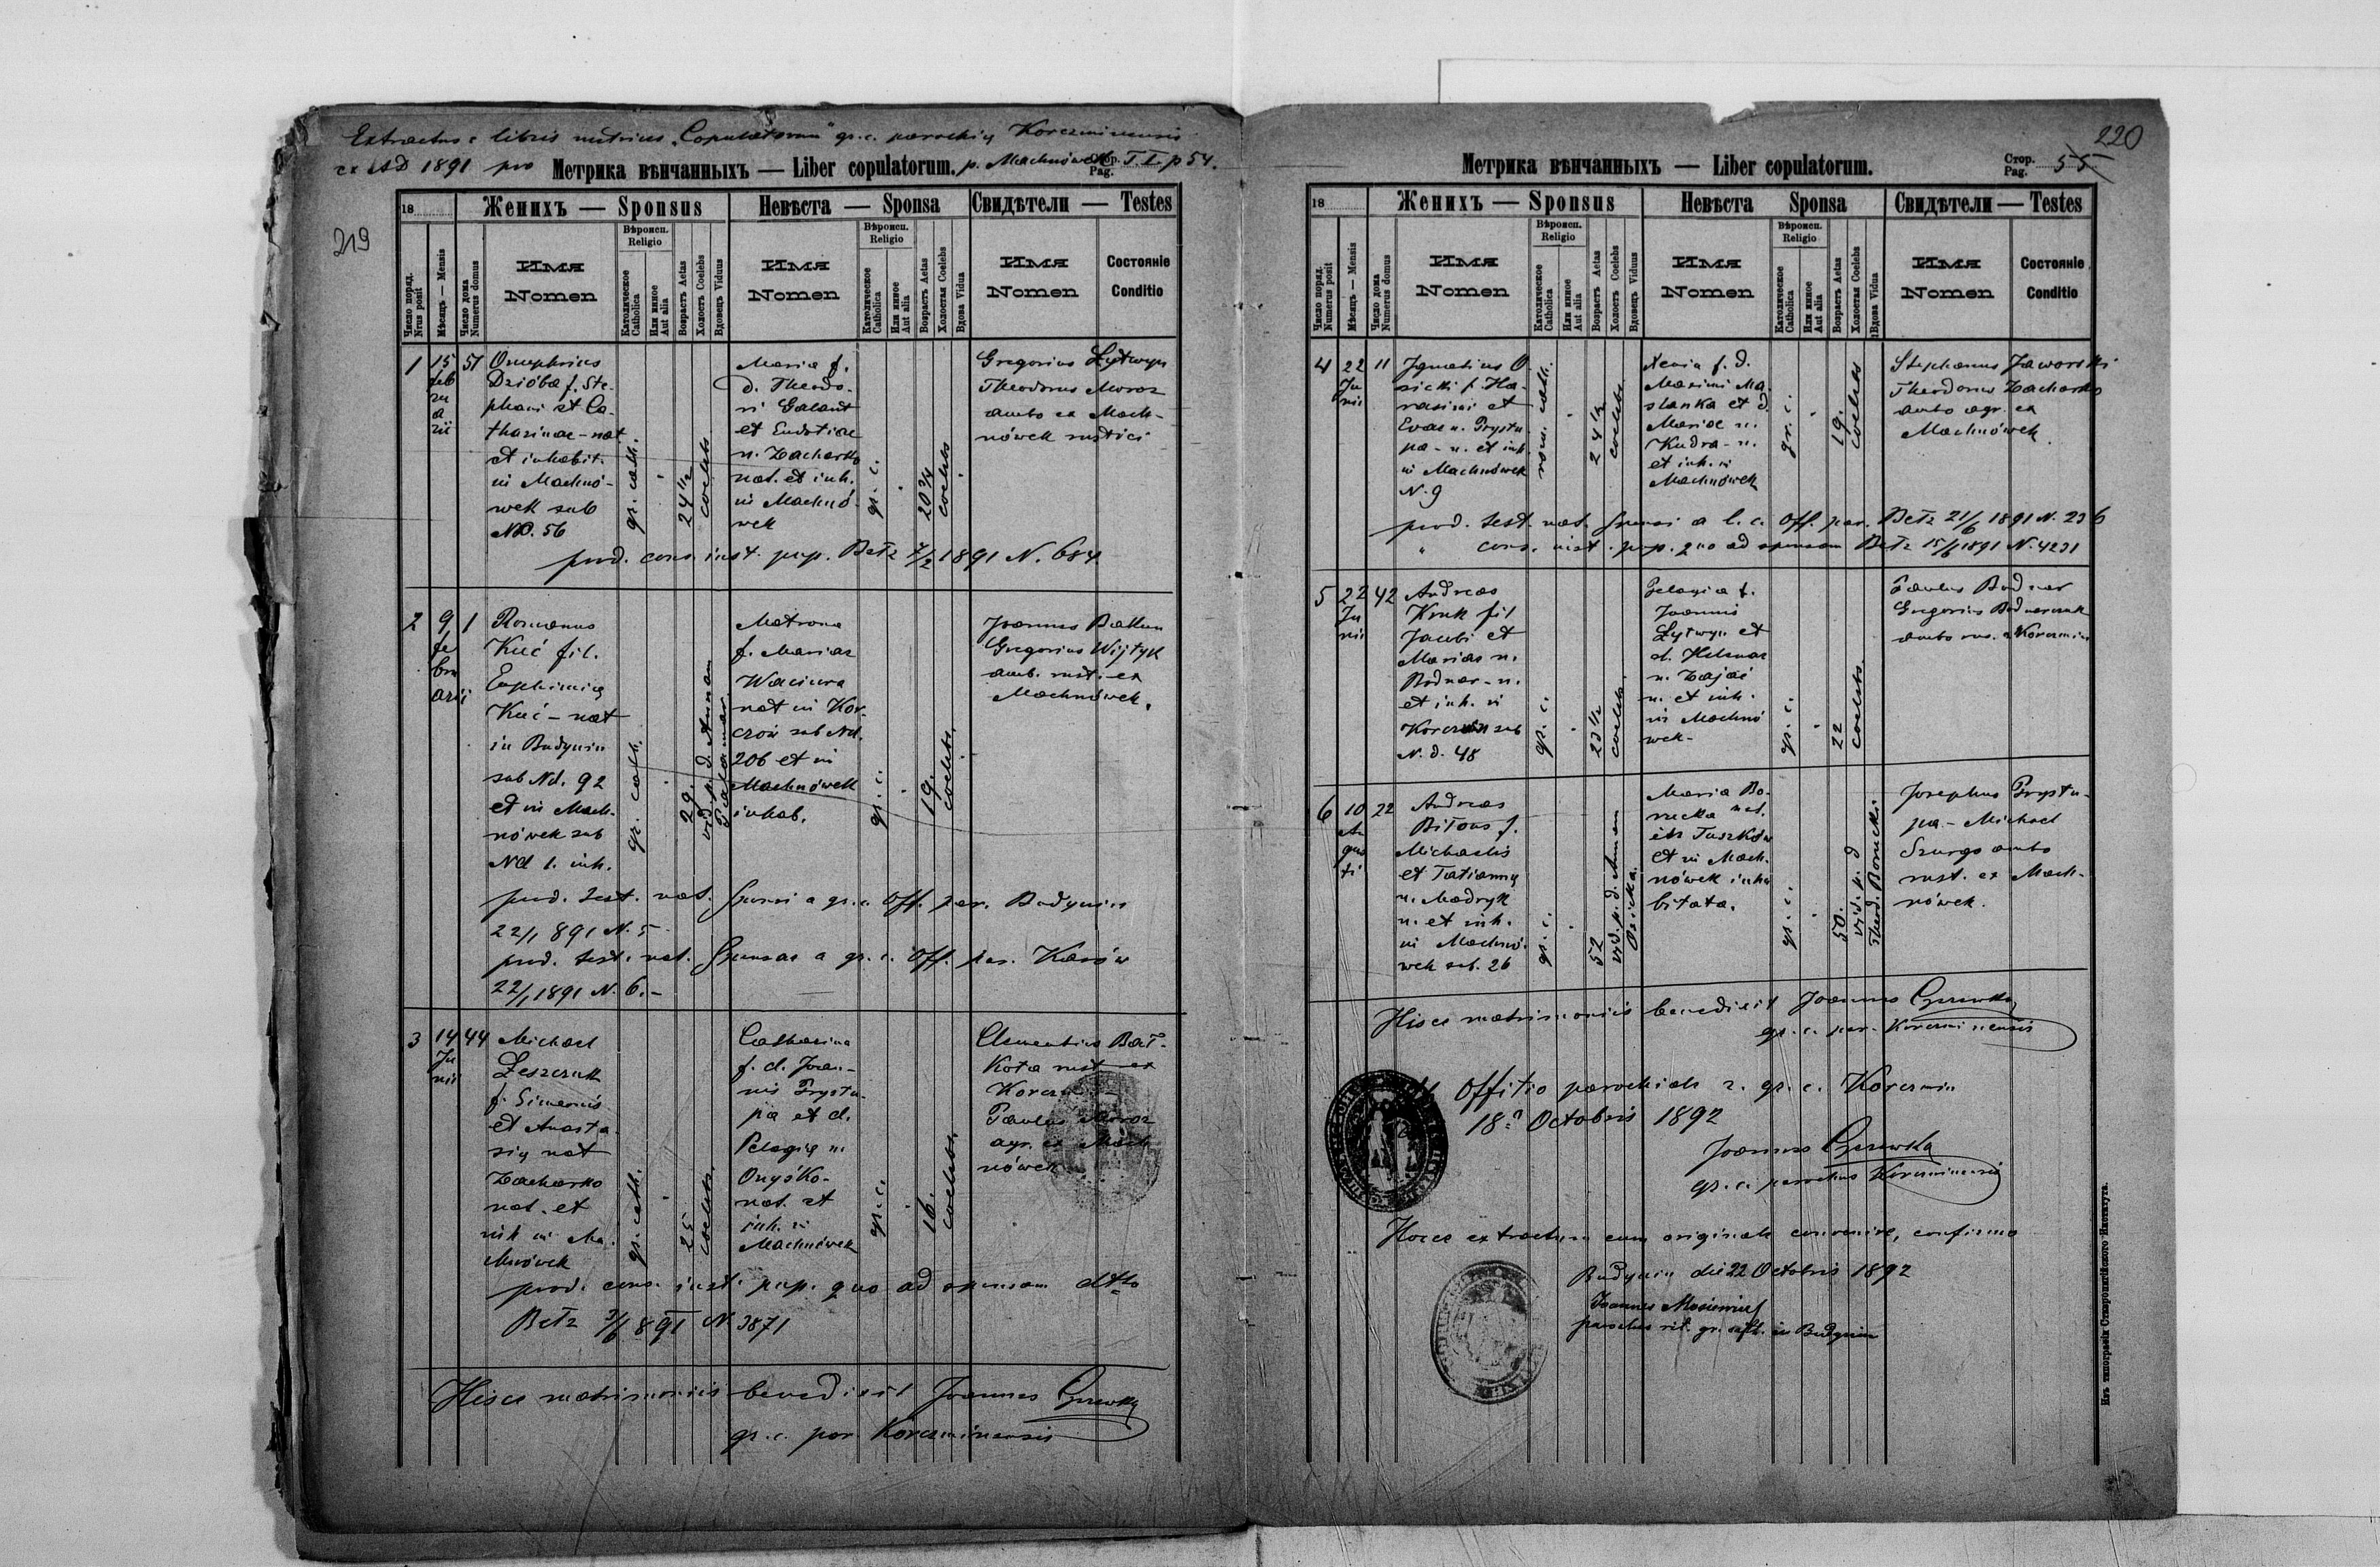 Extractus e libris metrices "Copulatorum" gr. c. parochię Korczminensis
ex AD 1891 pro Метрика вѣнчанныхъ — Liber copulatorum. p. Machnówek Стор. Pag. T. I. p 54.
219
18
Женихъ — Sponsus
Невѣста — Sponsa
Свидѣтели — Testes
Число поряд. Nrus posit
Мѣсяцъ — Mensis
Число дома Numerus domus
Имя
Nomen
Вѣроисп.
Religio
Католическое Catholica
Или инное Aut alia
Возрастъ Aetas
Холостъ Coelebs
Вдовецъ Viduus
Имя
Nomen
Вѣроисп.
Religio
Католическое Catholica
Или инное Aut alia
Возрастъ Aetas
Холостая Coelebs
Вдова Vidua
Имя
Nomen
Состояніе
Conditio
1
15
feb
ru
a
rii
51
Onuphrius
Dzioba f. Ste-
phani et Ca-
tharinae - nat
et inhabit.
in Machnó-
wek sub
ND. 56
gr. cath.
24 1/2
coelebs
Maria f.
d. Theodo-
ri Galant
et Eudotiae
n. Zacharko
nat. et inh.
in Machnó-
wek
gr. c.
20 3/4
coelebs
Gregorius Lytwyn
Theodorus Moroz
ambo ex Mach-
nówek rustici
prod. cons. inst. pup. Bełz 4/2 1891 N. 684
2
9
fe
bru
arii
1
Romanus
Kuć fil.
Euphimię
Kuć - nat
in Budynin
sub Nd. 92
et in Mach-
nówek sub
Nd 1. inh.
gr. cath.
29.
vid. p. d. Annam
Matrona
f. Mariae
Waciura
nat in Kor-
czów sub Nd.
206 et in
Machnówek
inhab.
gr. c.
19.
coelebs.
Joannes Bałkun
Gregorius Wijtyk
amb. rust. ex
Machnówek.
prod. test. nat. Sponsi a gr. c. Off. par. Budynin
22/1 891 N. 5
prod. test. nat. Sponsae a gr. c. Off. par. Karów
22/1 1891 N. 6. -
3
14
Ju
nii
44
Michael
Leszczuk
f. Simeonis
et Anasta-
się nat
Zacharko
nat. et
inh in Ma-
chnówek
gr. cath.
25
coelebs.
Catharina
f. d. Joan-
nis Prystu-
pa et d.
Pelagię n.
Onyśko -
nat. et
inh. in
Machnówek
gr. c.
16.
coelebs.
Clementius Bał-
kota rust ex
Korczm
Paulus Moroz
agr. ex Mach
nówek
prod. cons. inst. pup. quo ad sponsam dtto
Bełz 3/6 891 N. 3871
Hisce matrimoniis benedixit Joannes
gr. c. par. Korczminensis
220
Метрика вѣнчанныхъ — Liber copulatorum.
Стор. Pag. 55
18
Женихъ — Sponsus
Невѣста Sponsa
Свидѣтели — Testes
Число поряд. Numerus posit
Мѣсяцъ — Mensis
Число дома Numerus domus
Имя
Nomen
Вѣроисп.
Religio
Католическое Catholica
Или инное Aut alia
Возрастъ Aetas
Холостъ Coelebs
Вдовецъ Viduus
Имя
Nomen
Вѣроисп.
Religio
Католическое Catholica
Или инное Aut alia
Возрастъ Aetas
Холостая Coelebs
Вдова Vidua
Имя
Nomen
Состояніе
Conditio
4
22
Ju
nii
11
Ignatius O-
sicki f. Ha-
rasimi et
Evae n. Prystu-
pa - n. et inh.
in Machnówek
N. 9
rom. cath.
24 1/2
coelebs
Xenia f. d.
Maximi Ma-
slanka et d.
Mariae n.
Kudra - n.
et inh. in
Machnówek
gr. c.
19.
coelebs
Stephanus Jaworski
Theodorus Zacharko
ambo agr. ex
Machnówek.
prod. test. nat. Sponsi a l. c. Off. par. Bełz 21/6 1891 N. 236
" cons. inst. pup. quo ad sponsam Bełz 15/6 1891 N. 4231
5
22
Ju
nii
42
Andreas
Kruk fil
Jacobi et
Mariae n.
Bodnar - n.
et inh. in
Korczmin sub
N. d. 48
gr. c.
23 1/2
coelebs.
Pelagia f.
Joannis
Lytwyn et
d. Helenae
n. Zajać
n. et inh.
in Machnó
wek -
gr. c.
22
coelebs.
Paulus Bodnar
Gregorius Bodnarczuk
ambo rus. ex Korczmin
6
10
Au
gus
ti
22
Andreas
Biłous f.
Michaelis
et Tatiannę
n. Madryk
n. et inh.
in Machnó-
wek sub. 26
gr. c.
52
vid. p. d. Annam
Osicka.
Maria Bo-
rucka nat.
in Tuszków
et in Mach-
nówek inha
bitata.
gr. c.
50.
vid. p. d
Theod. Borucki.
Josephus Prystu-
pa - Michael
Szurgo ambo
rust. ex Mach-
nówek.
Hisce matrimoniis benedixit Joannes
gr. c. par. Korczminensis
Offitio parochiale r. gr. c. Korczmin
18. Octobris 1892
Joannes
gr. c. parochus Korczminensis
Hocce extractum cum originale convenire, confirmo
Budynin die 22 Octobris 1892
Joannes
parochus rit. gr. cath. in Budynin
Изъ типографіи Ставропигійского Института.